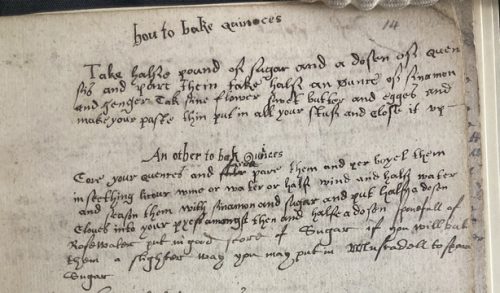 hou to bake quinces
14
Take halfe pound of sugar and a dosen of quen
sis and pare them take half an ounce of sinamon
and genger Tak fine flower sweet butter and egges and
make your paste thin put in all your stuf and close it vp
An other to bak quinces
Core your quences and pare them and per boyel them
in seething licour wine or water or half wind and half water
and season them with sinamon and sugar and put halfe a dosen
Cloues into your pyes amongst then and halfe a dosen spoenfull of
Rosewater put in good store of Sugar if you will bak
them a slighter way you may put in Muscadell to spare
Sugar